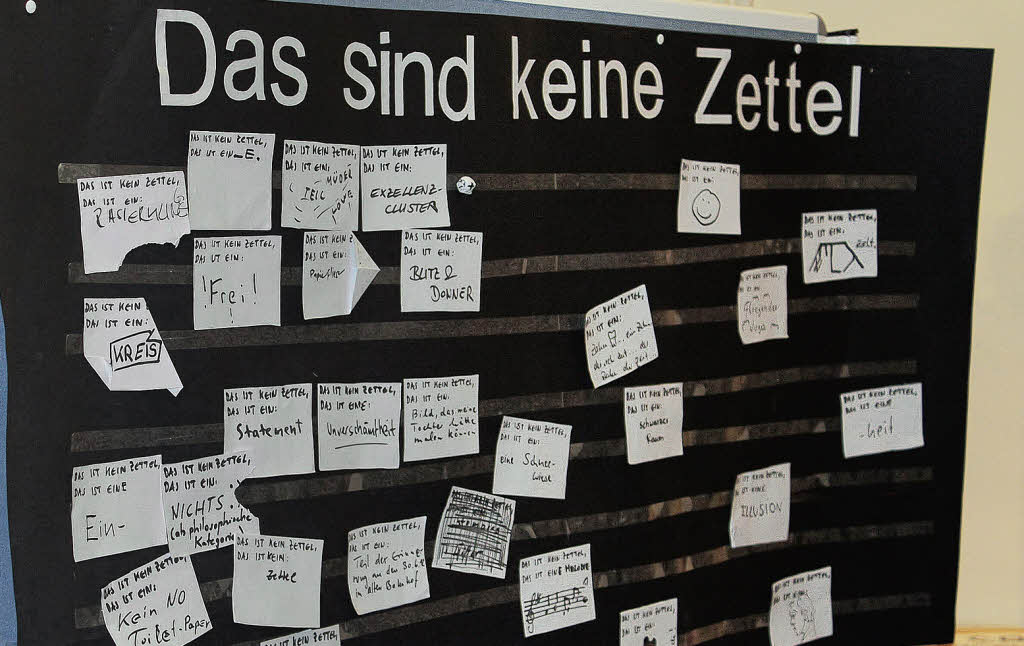 Das sind keine Zettel
DAS IST KEIN ZETTEL,
DAS IST EIN:
DAS IST KEIN ZETTEL,
DAS IST EIN_E.
DAS IST KEIN ZETTEL,
DAS IST EIN:
MÜDER
DAS IST KEIN ZETTEL,
DAS IST EIN:
EXZELLENZ-
CLUSTER
DAS IST KEIN ZETTEL,
IST EIN:
DAS IST KEIN ZETTEL,
DAS IST EIN:
Zelt.
DAS IST KEIN ZETTEL,
DAS IST EIN:
!Frei!
DAS IST KEIN Z
DAS IST EIN:
DAS IST KEIN ZETTEL,
DAS IST EIN:
BLITZ &
DONNER
IST KEIN ZETTEL,
DAS IST KEIN ZETTEL,
DAS IST EIN:
DAS IST KEIN
DAS IST EIN:
KREIS
DAS IST KEIN ZETTEL,
DAS IST EIN:
Statement
DAS IST KEIN ZETTEL,
DAS IST EINE:
Unverschämtheit
DAS IST KEIN ZETTEL,
DAS IST EIN:
Bild, das meine
Tochter hätte
malen können
DAS IST KEIN ZETTEL,
DAS IST EIN:
schwarzes
Raum
DAS IST KEIN ZETTEL,
DAS IST EINE
-heit
DAS IST KEIN ZETTEL,
DAS IST EIN:
eine Schnee-
wiese
DAS IST KEIN ZETTEL,
DAS IST EINE
Ein-
DAS IST KEIN ZETTEL,
DAS IST EIN:
NICHTS
(als philosophische
Kategorie
DAS IST KEIN ZETTEL,
IST EINE
ILLUSION
DAS IST KEIN ZETTEL,
DAS IST KEIN:
Zettel
DAS IST KEIN ZETTEL,
IST EIN:
Teil der Erinne-
rung an den
im alten Bahnhof
DAS IST KEIN ZETTEL,
DAS IST EINE MELODIE
DAS IST KEIN ZETTEL,
DAS IST EIN:
Kein NO
Toilet-Paper
DAS IST KEIN ZETTEL,
DAS IST EIN:
DAS IST KEIN ZETTEL,
DAS IST EIN:
DAS IST KEIN ZETTEL,